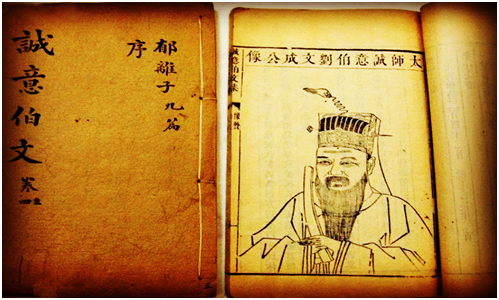 郁離子九篇
序
誠意伯文
卷
太師誠意伯劉文成公像
誠意伯文集